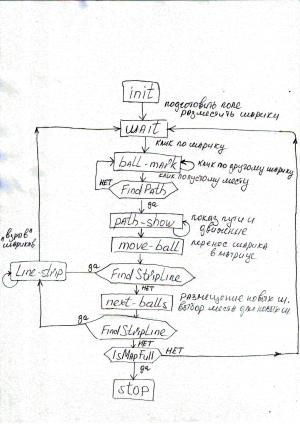 init
подготовить поле
разместить шарики
wait
клик по шарику
ball-mark
клик по другому шарику
клик по пустому месту
нет
FindPath
да
path-show
показ пути и
движение
move-ball
перенос шарика
в матрице
"взрыв"
шариков
Line-strip
да
FindStripLine
нет
next-balls
размещение новых ш.
выбор места для новых ш.
да
FindStripLine
нет
IsMapFull
нет
да
stop